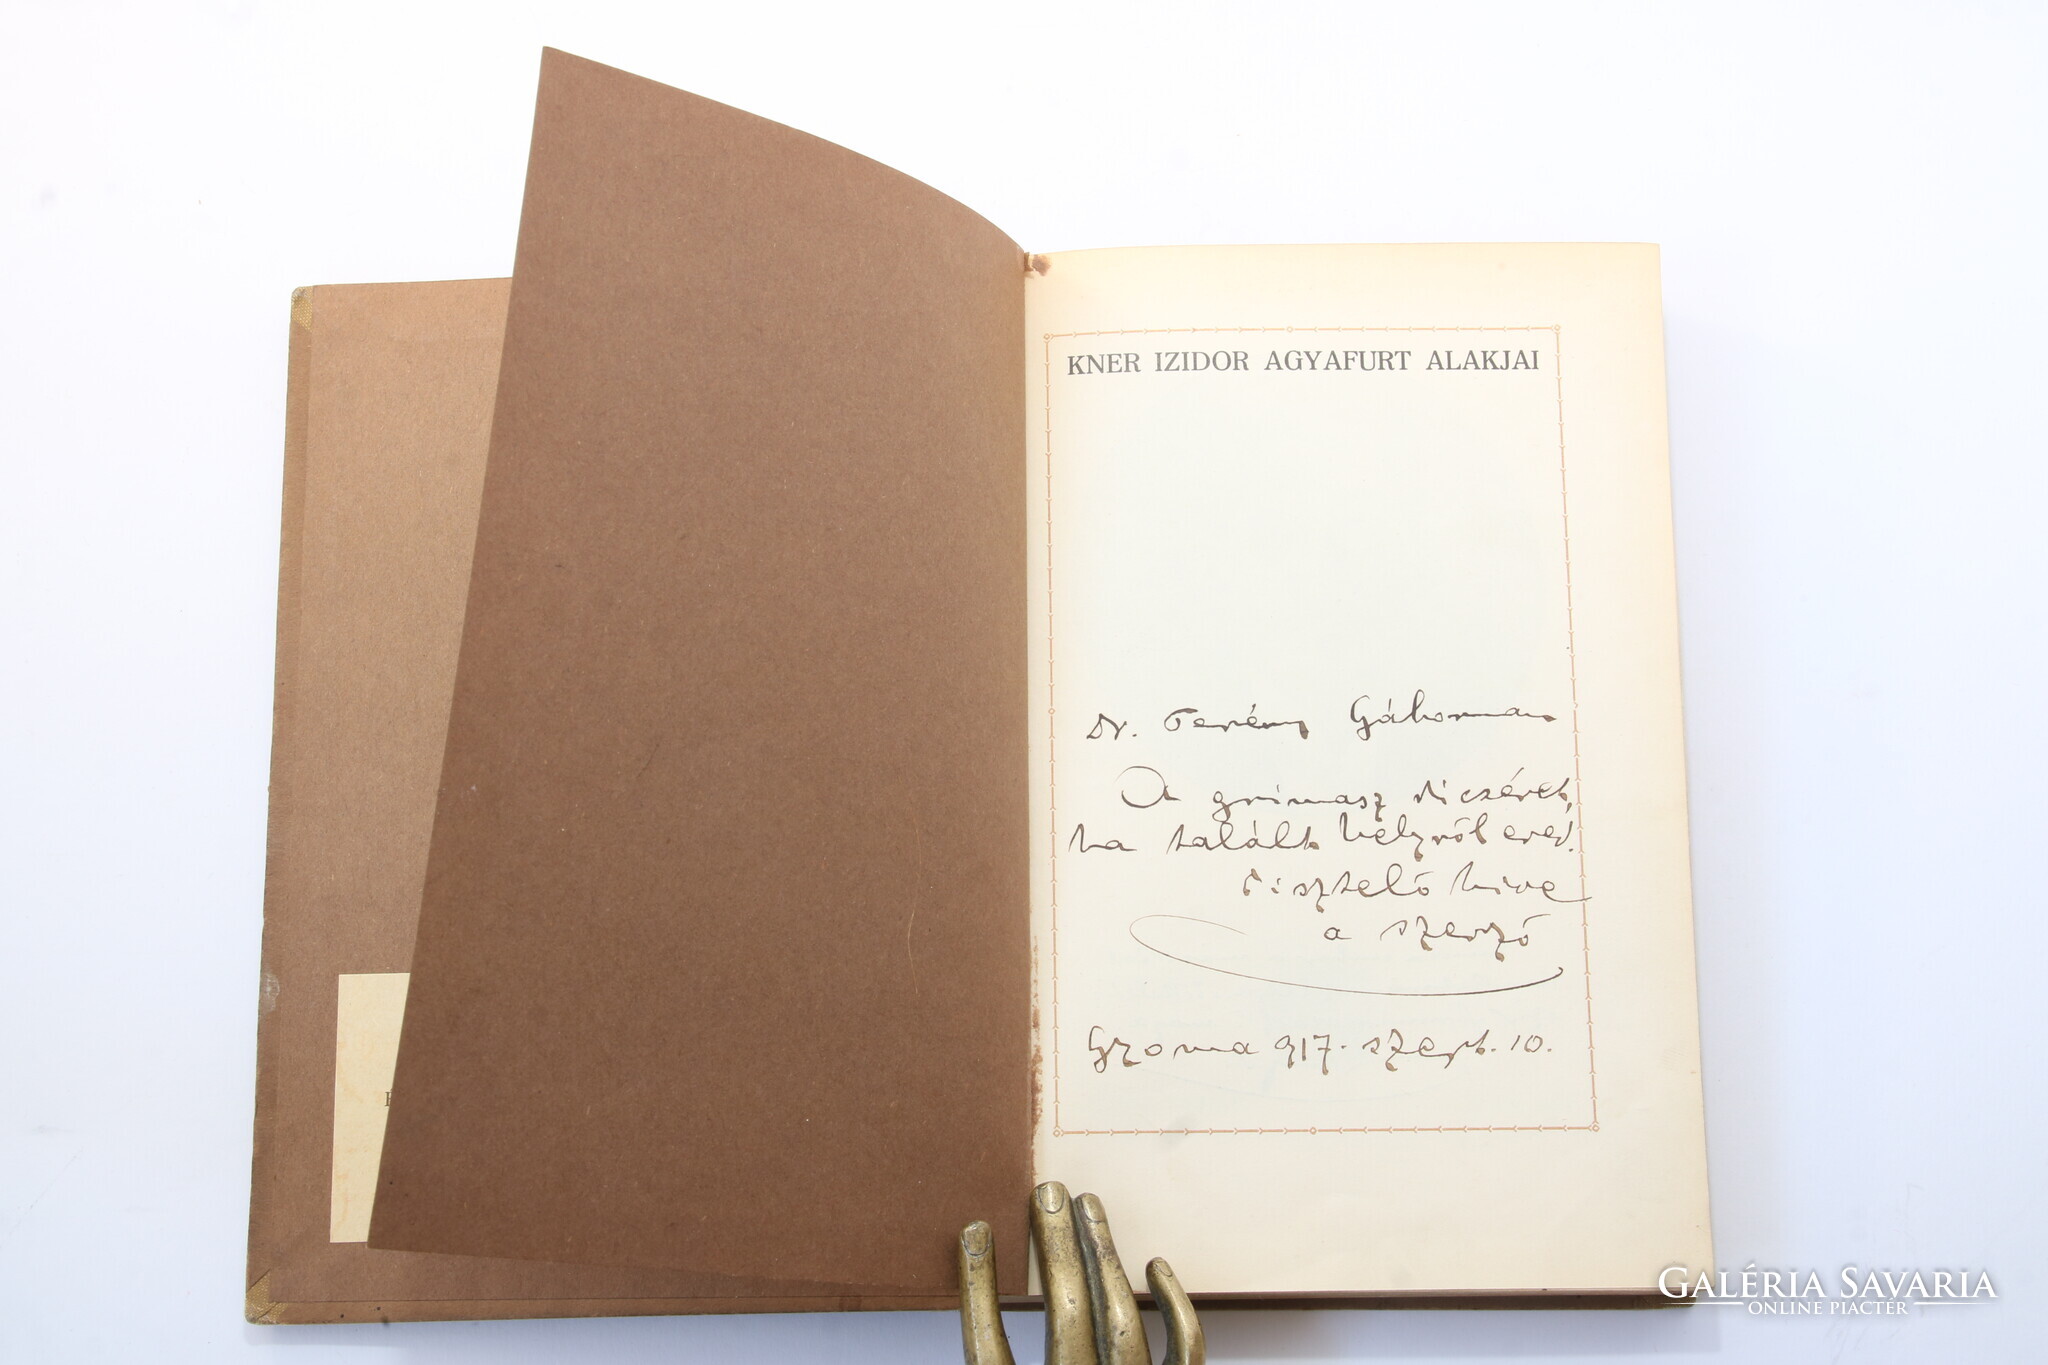 KNER IZIDOR AGYAFURT ALAKJAI
Dr. Terény Gábornak
A grimasz dicséret,
ha talált helyről ered.
tisztelő hive
a szerző
Gyoma 917. szept. 10.
GALÉRIA SAVARIA
ONLINE PIACTÉR